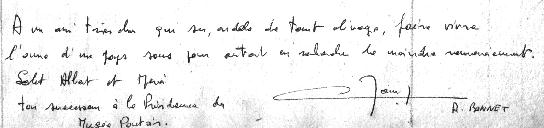 A un ami très cher qui sut, au delà de tout clivage, faire vivre
l'âme d'un pays sans pour autant en rechercher le moindre remerciement.
Salut Albert et Merci
ton successeur à la Présidence du
Musée
R. BONNET